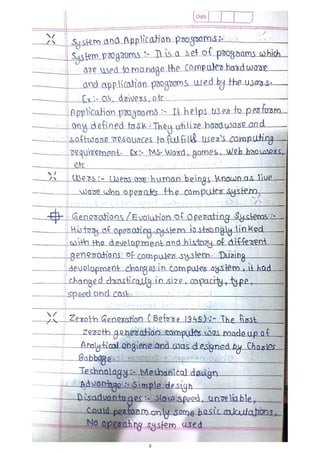 Date
System and Application programs:-
System programs :- It is a set of programs which
are used to manage the computer hardware
and application programs used by the users.
Ex:- OS, drivers, etc.
Application programs :- It helps user to perform
any defined task. They utilize hardware and
software resources to fulfills user's computing
requirement. Ex:- MS-Word, games, web browsers,
etc
Users :- Users are human beings known as live
ware who operate the computer system.
Generations / Evolution of Operating Systems :-
History of operating system is strongly linked
with the development and history of different
generations of computer system. During
development changes in computer system, it had
changed drastically in size, capacity, type,
speed and cost.
Zeroth Generation (Before 1945) :- The first
zeroth generation computer was made up of
Analytical engine and was designed by Charles
Babbage
Technology :- Mechanical design
Advantage :- Simple design
Disadvantages :- Slow speed, unreliable,
could perform only some basic calculations,
No operating system used